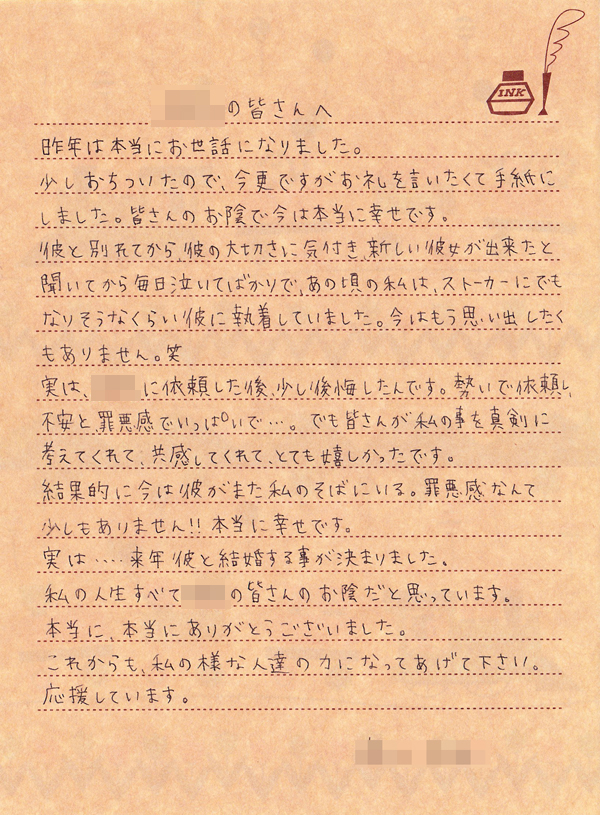 INK
の皆さんへ
昨年は本当にお世話になりました。
少しおちついたので、今更ですがお礼を言いたくて手紙に
しました。皆さんのお陰で今は本当に幸せです。
彼と別れてから、彼の大切さに気付き、新しい彼女が出来たと
聞いてから毎日泣いてばかりで、あの頃の私は、ストーカーにでも
なりそうなくらい彼に執着していました。今はもう思い出したく
もありません。笑
実は、に依頼した後、少し後悔したんです。勢いで依頼し、
不安と、罪悪感でいっぱいで…。でも皆さんが私の事を真剣に
考えてくれて、共感してくれて、とても嬉しかったです。
結果的に今は彼がまた私のそばにいる。罪悪感なんて
少しもありません!!本当に幸せです。
実は‥‥来年彼と結婚する事が決まりました。
私の人生すべての皆さんのお陰だと思っています。
本当に、本当にありがとうございました。
これからも、私の様な人達の力になってあげて下さい。
応援しています。